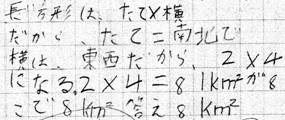 長方形は、たて×横
だから、たて＝南北で
横は、東西だから、2×4
になる。2×4＝8 1km²が8
こで8km² 答え8km²